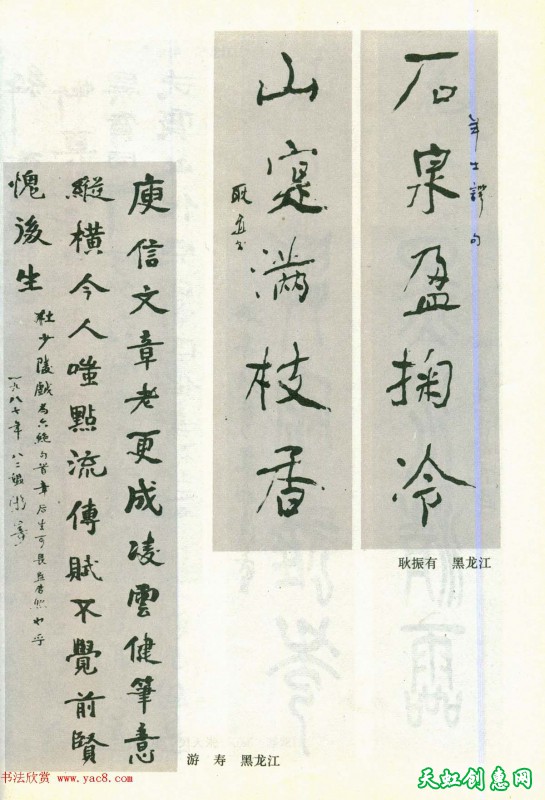 石泉盈掬冷
羊士諤句
山寔滿枝香
耿振有 黑龙江
庾信文章老更成凌雲健筆意
縱橫今人嗤點流傳賦不覺前賢
愧後生
杜少陵戲为六絕句首章后生可畏
一九八七年八二
游寿 黑龙江
书法欣赏 www.yac8.com
天虹创意网